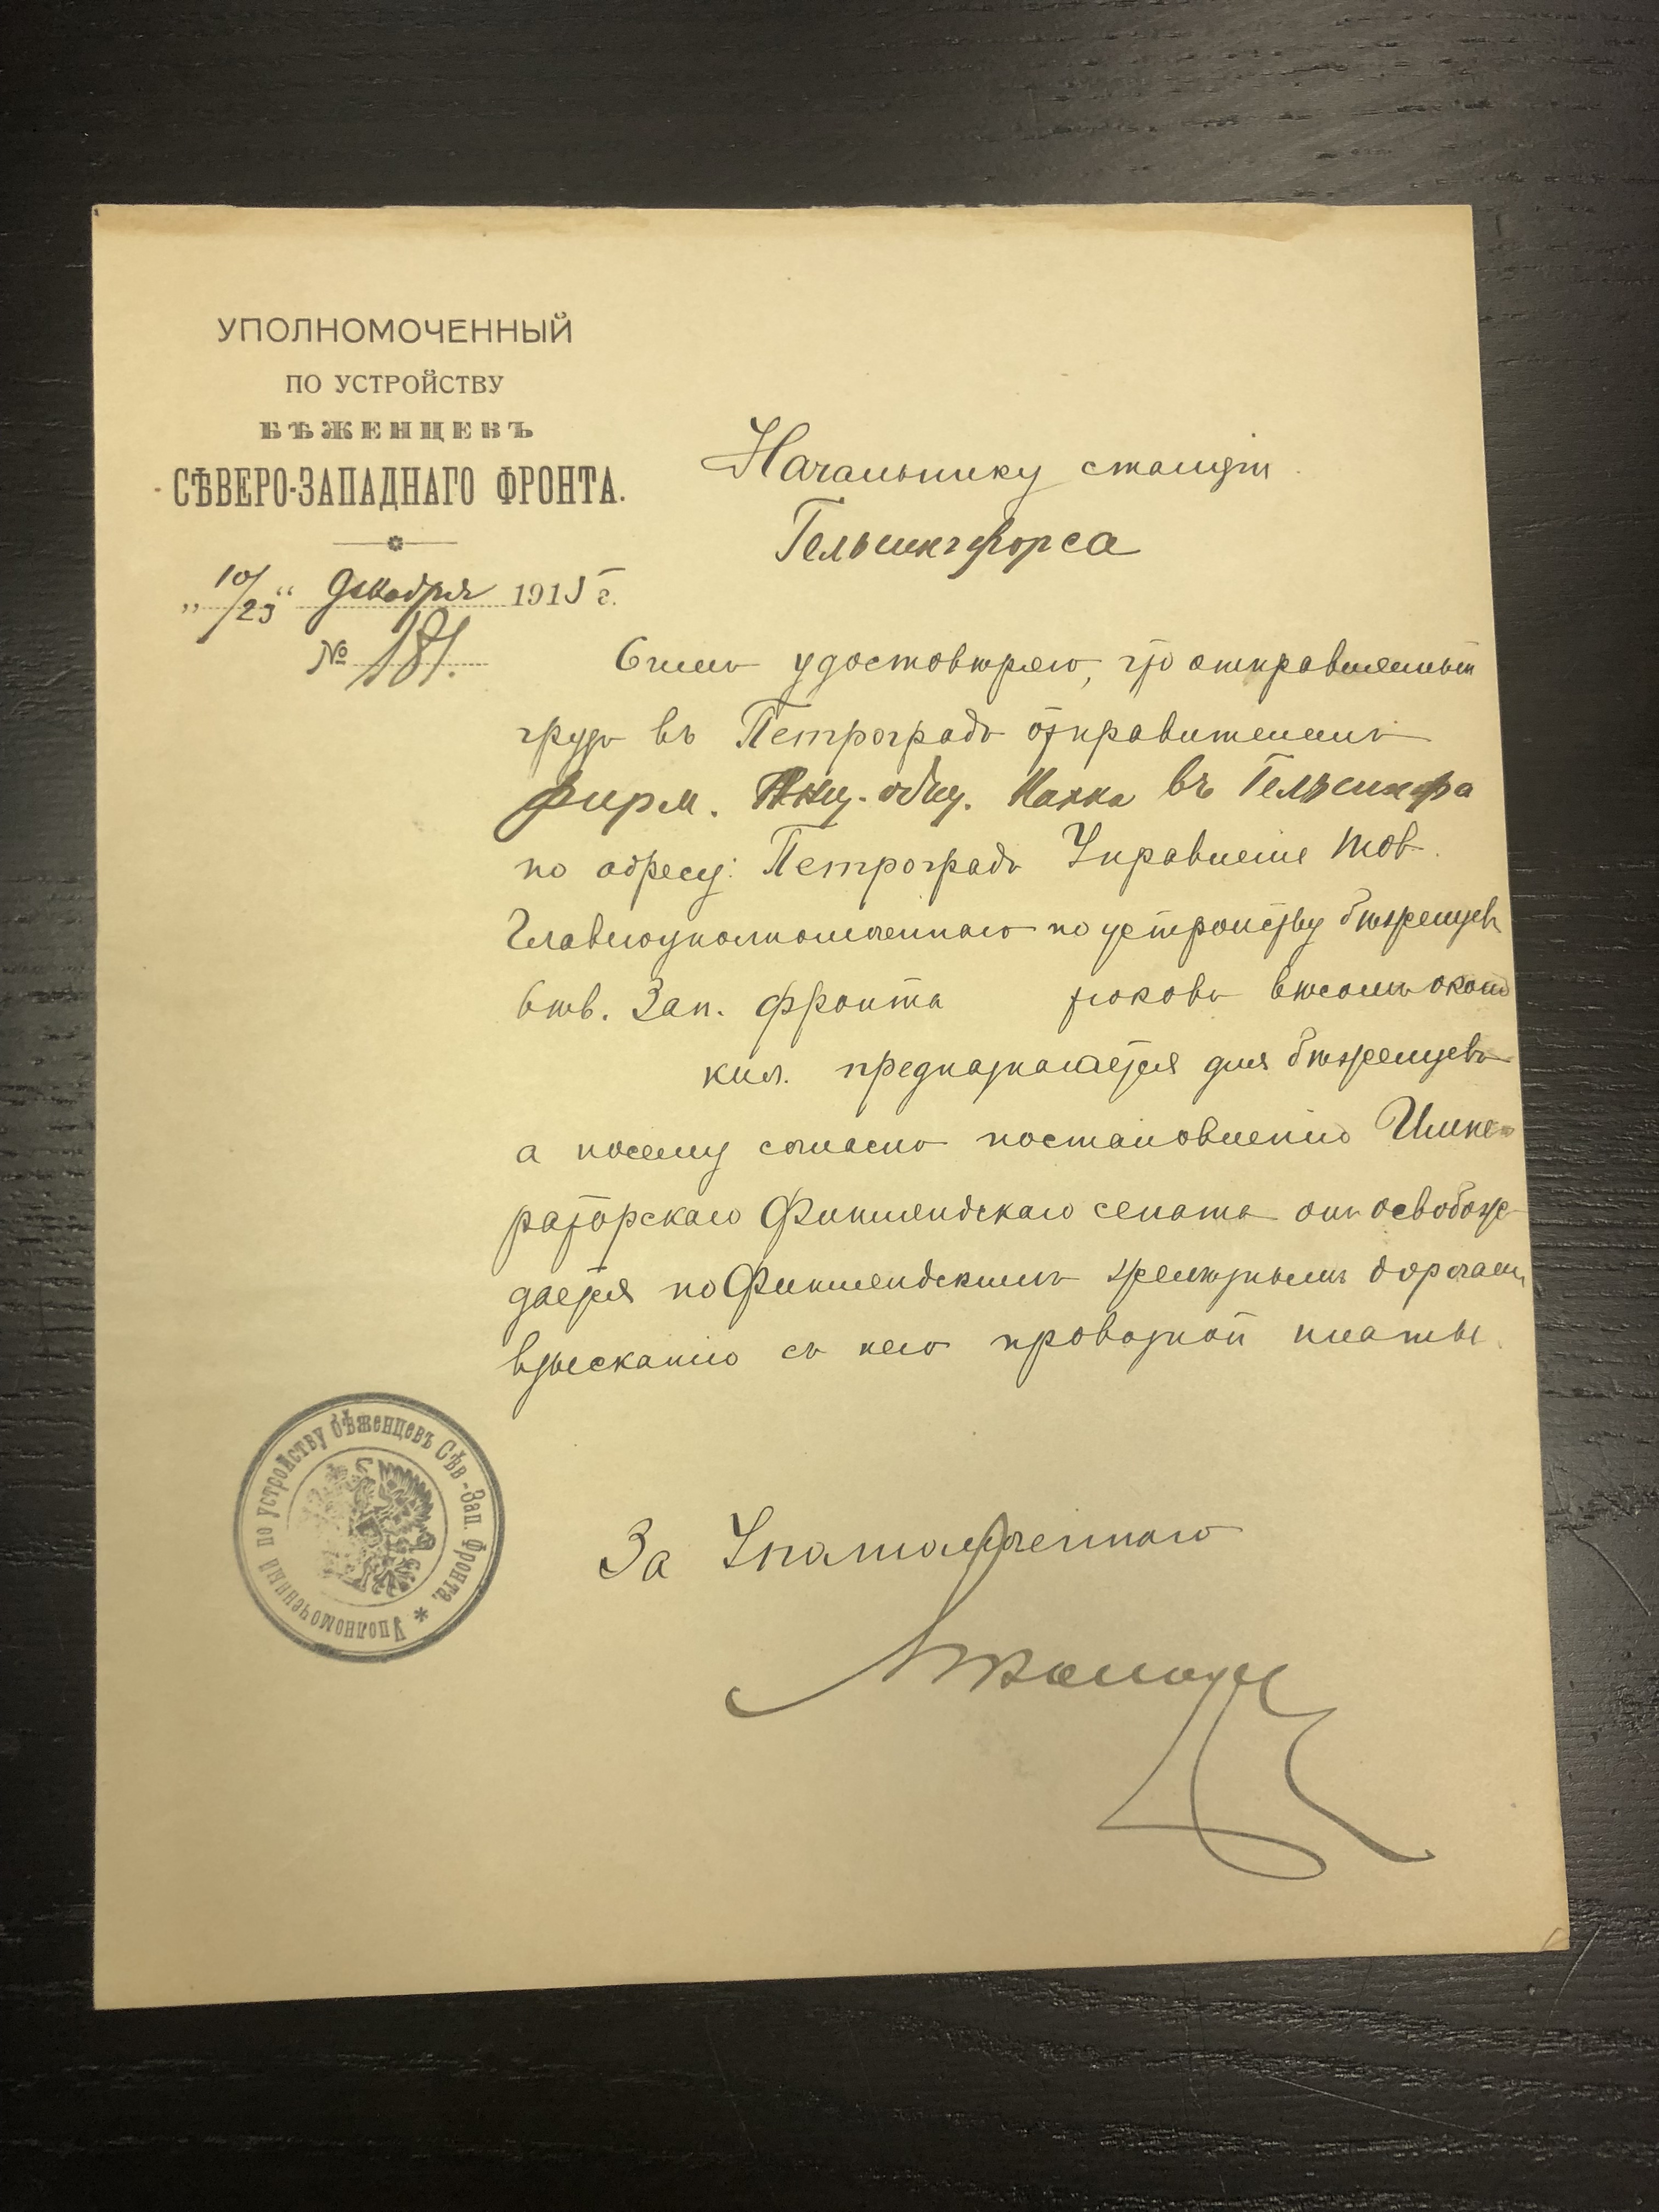 УПОЛНОМОЧЕННЫЙ
ПО УСТРОЙСТВУ
БѢЖЕНЦЕВЪ
СѢВЕРО-ЗАПАДНАГО ФРОНТА.
„10/23“ декабря 1915 г.
№ 181.
Начальнику станціи
Гельсингфорса
Симъ удостовѣряю, что отправляемый
грузъ въ Петроградъ отправителемъ
Фирм. Акц. общ. въ Гельсингфорса
по адресу: Петроградъ Управленіе Тов.
Главноуполномоченнаго по устройству бѣженцевъ
Сѣв. Зап. фронта вѣсомъ около
кил. предназначается для бѣженцевъ
а посему согласно постановленію Импе-
раторскаго Финляндскаго сената онъ освобож-
дается по Финляндскимъ желѣзнымъ дорогамъ
взысканію съ него провозной платы.
За Уполномоченнаго
Уполномоченный по устройству бѣженцевъ Сѣв.-Зап. Фронта. *